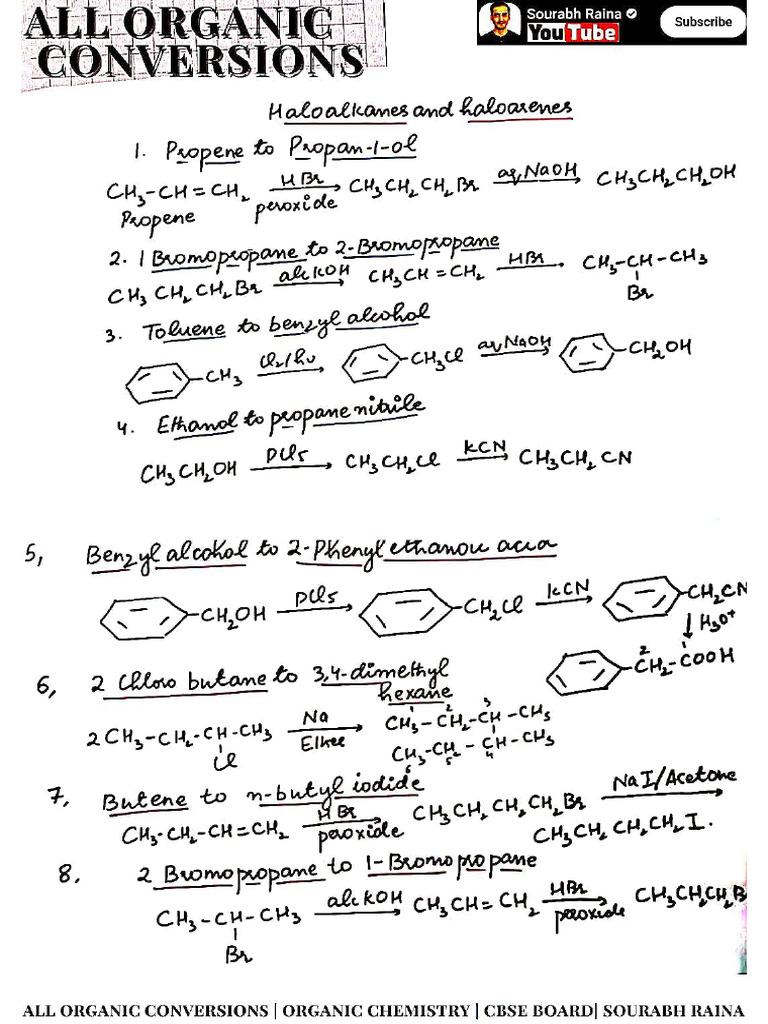 ALL ORGANIC
CONVERSIONS
Sourabh Raina
YouTube
Subscribe
Haloalkanes and haloarenes
1. Propene to Propan-1-ol
CH3-CH=CH2 HBr peroxide CH3CH2CH2Br aq NaOH CH3CH2CH2OH
Propene
2. 1 Bromopropane to 2-Bromopropane
CH3 CH2 CH2Br alc KOH CH3CH=CH2 HBr CH3-CH-CH3
Br
3. Toluene to benzyl alcohol
-CH3 Cl2/hν -CH3Cl aq NaOH -CH2OH
4. Ethanol to propane nitrile
CH3CH2OH PCl5 CH3CH2Cl KCN CH3CH2CN
5, Benzyl alcohol to 2-Phenyl ethanoic acid
-CH2OH PCl5 -CH2Cl KCN -CH2CN
H3O+
2 1
-CH2-COOH
6, 2 Chloro butane to 3,4-dimethyl
hexane
2CH3-CH2-CH-CH3 Na Ether CH3-CH2-CH-CH3
Cl
1 2 3
CH3-CH2-CH-CH3
6 5 4
7, Butene to n-butyl iodide
CH3-CH2-CH=CH2 HBr peroxide CH3CH2CH2CH2Br NaI/Acetone
CH3CH2CH2CH2I.
8. 2 Bromopropane to 1-Bromopropane
CH3-CH-CH3 alc KOH CH3CH=CH2 HBr peroxide CH3CH2CH2B
Br
ALL ORGANIC CONVERSIONS | ORGANIC CHEMISTRY | CBSE BOARD| SOURABH RAINA